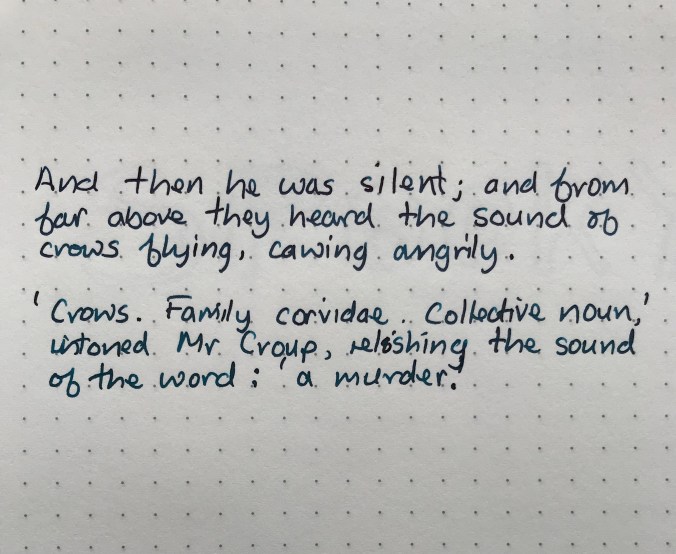 And then he was silent; and from
far above they heard the sound of
crows flying, cawing angrily.
'Crows. Family corvidae. Collective noun,'
intoned Mr Croup, relishing the sound
of the word: 'a murder.'